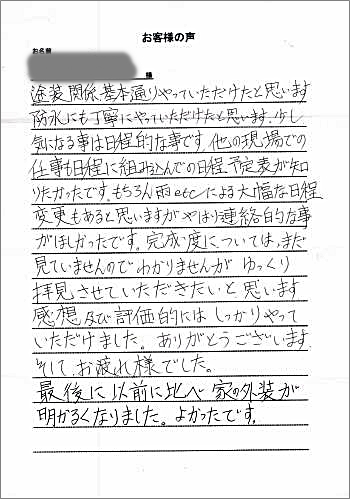 お客様の声
お名前
様
塗装関係基本通りやっていただけたと思います
防水にも丁寧にやっていただけたと思います.少し
気になる事は日程的な事です。他の現場での
仕事も日程に組み込んでの日程予定表が知
りたかったです。もちろん雨etcによる大幅な日程
変更もあると思いますがやはり連絡的な事
がほしかったです。完成度については、まだ
見ていませんのでわかりませんが ゆっくり
拝見させていただきたいと思います
感想及び評価的にはしっかりやって
いただけました。ありがとうございます.
そして、お疲れ様でした。
最後に以前に比べ家の外装が
明かるくなりました。よかったです。